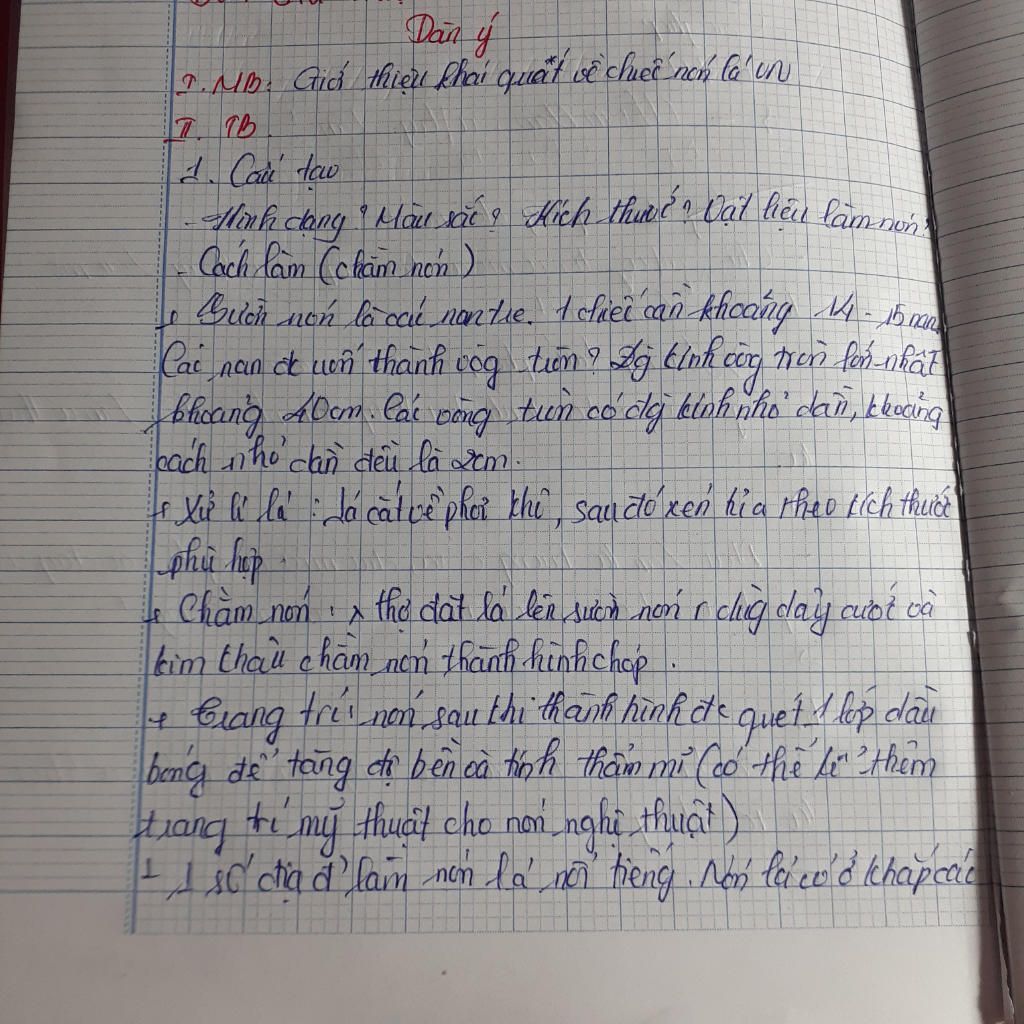 Dàn ý
I. MB: Giới thiệu khái quát về chiếc nón lá VN
II. TB
1. Cấu tạo
- Hình dạng? Màu sắc? Kích thước? Vật liệu làm nón?
- Cách làm (chằm nón)
+ Sườn nón là các nan tre. 1 chiếc cần khoảng 14 - 15 nan.
Các nan đc uốn thành vòg tròn? Đg kính vòg tròn lớn nhất
khoảng 40cm. Các vòng tròn có đg kính nhỏ dần, khoảng
cách nhỏ dần đều là 2cm.
+ Xử lí lá: lá cắt về phơi khô, sau đó xén tỉa theo kích thước
phù hợp.
+ Chằm nón: thợ đặt lá lên sườn nón r dùg dây cước và
kim khâu chằm nón thành hình chóp.
+ Trang trí: nón sau khi thành hình đc quét 1 lớp dầu
bóng để tăng độ bền và tính thẩm mĩ (có thể kể thêm
trang trí mỹ thuật cho nón nghệ thuật)
- 1 số địa đ' làm nón lá nổi tiếng. Nón lá có ở khắp các